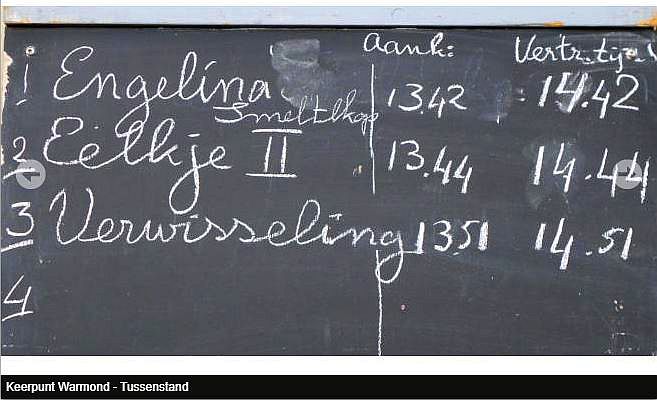 Aank: Vertr.tijd
1 Engelina 13.42 14.42
Smeltekop
2 Eelkje II 13.44 14.44
3 Verwisseling 13.51 14.51
4
Keerpunt Warmond - Tussenstand